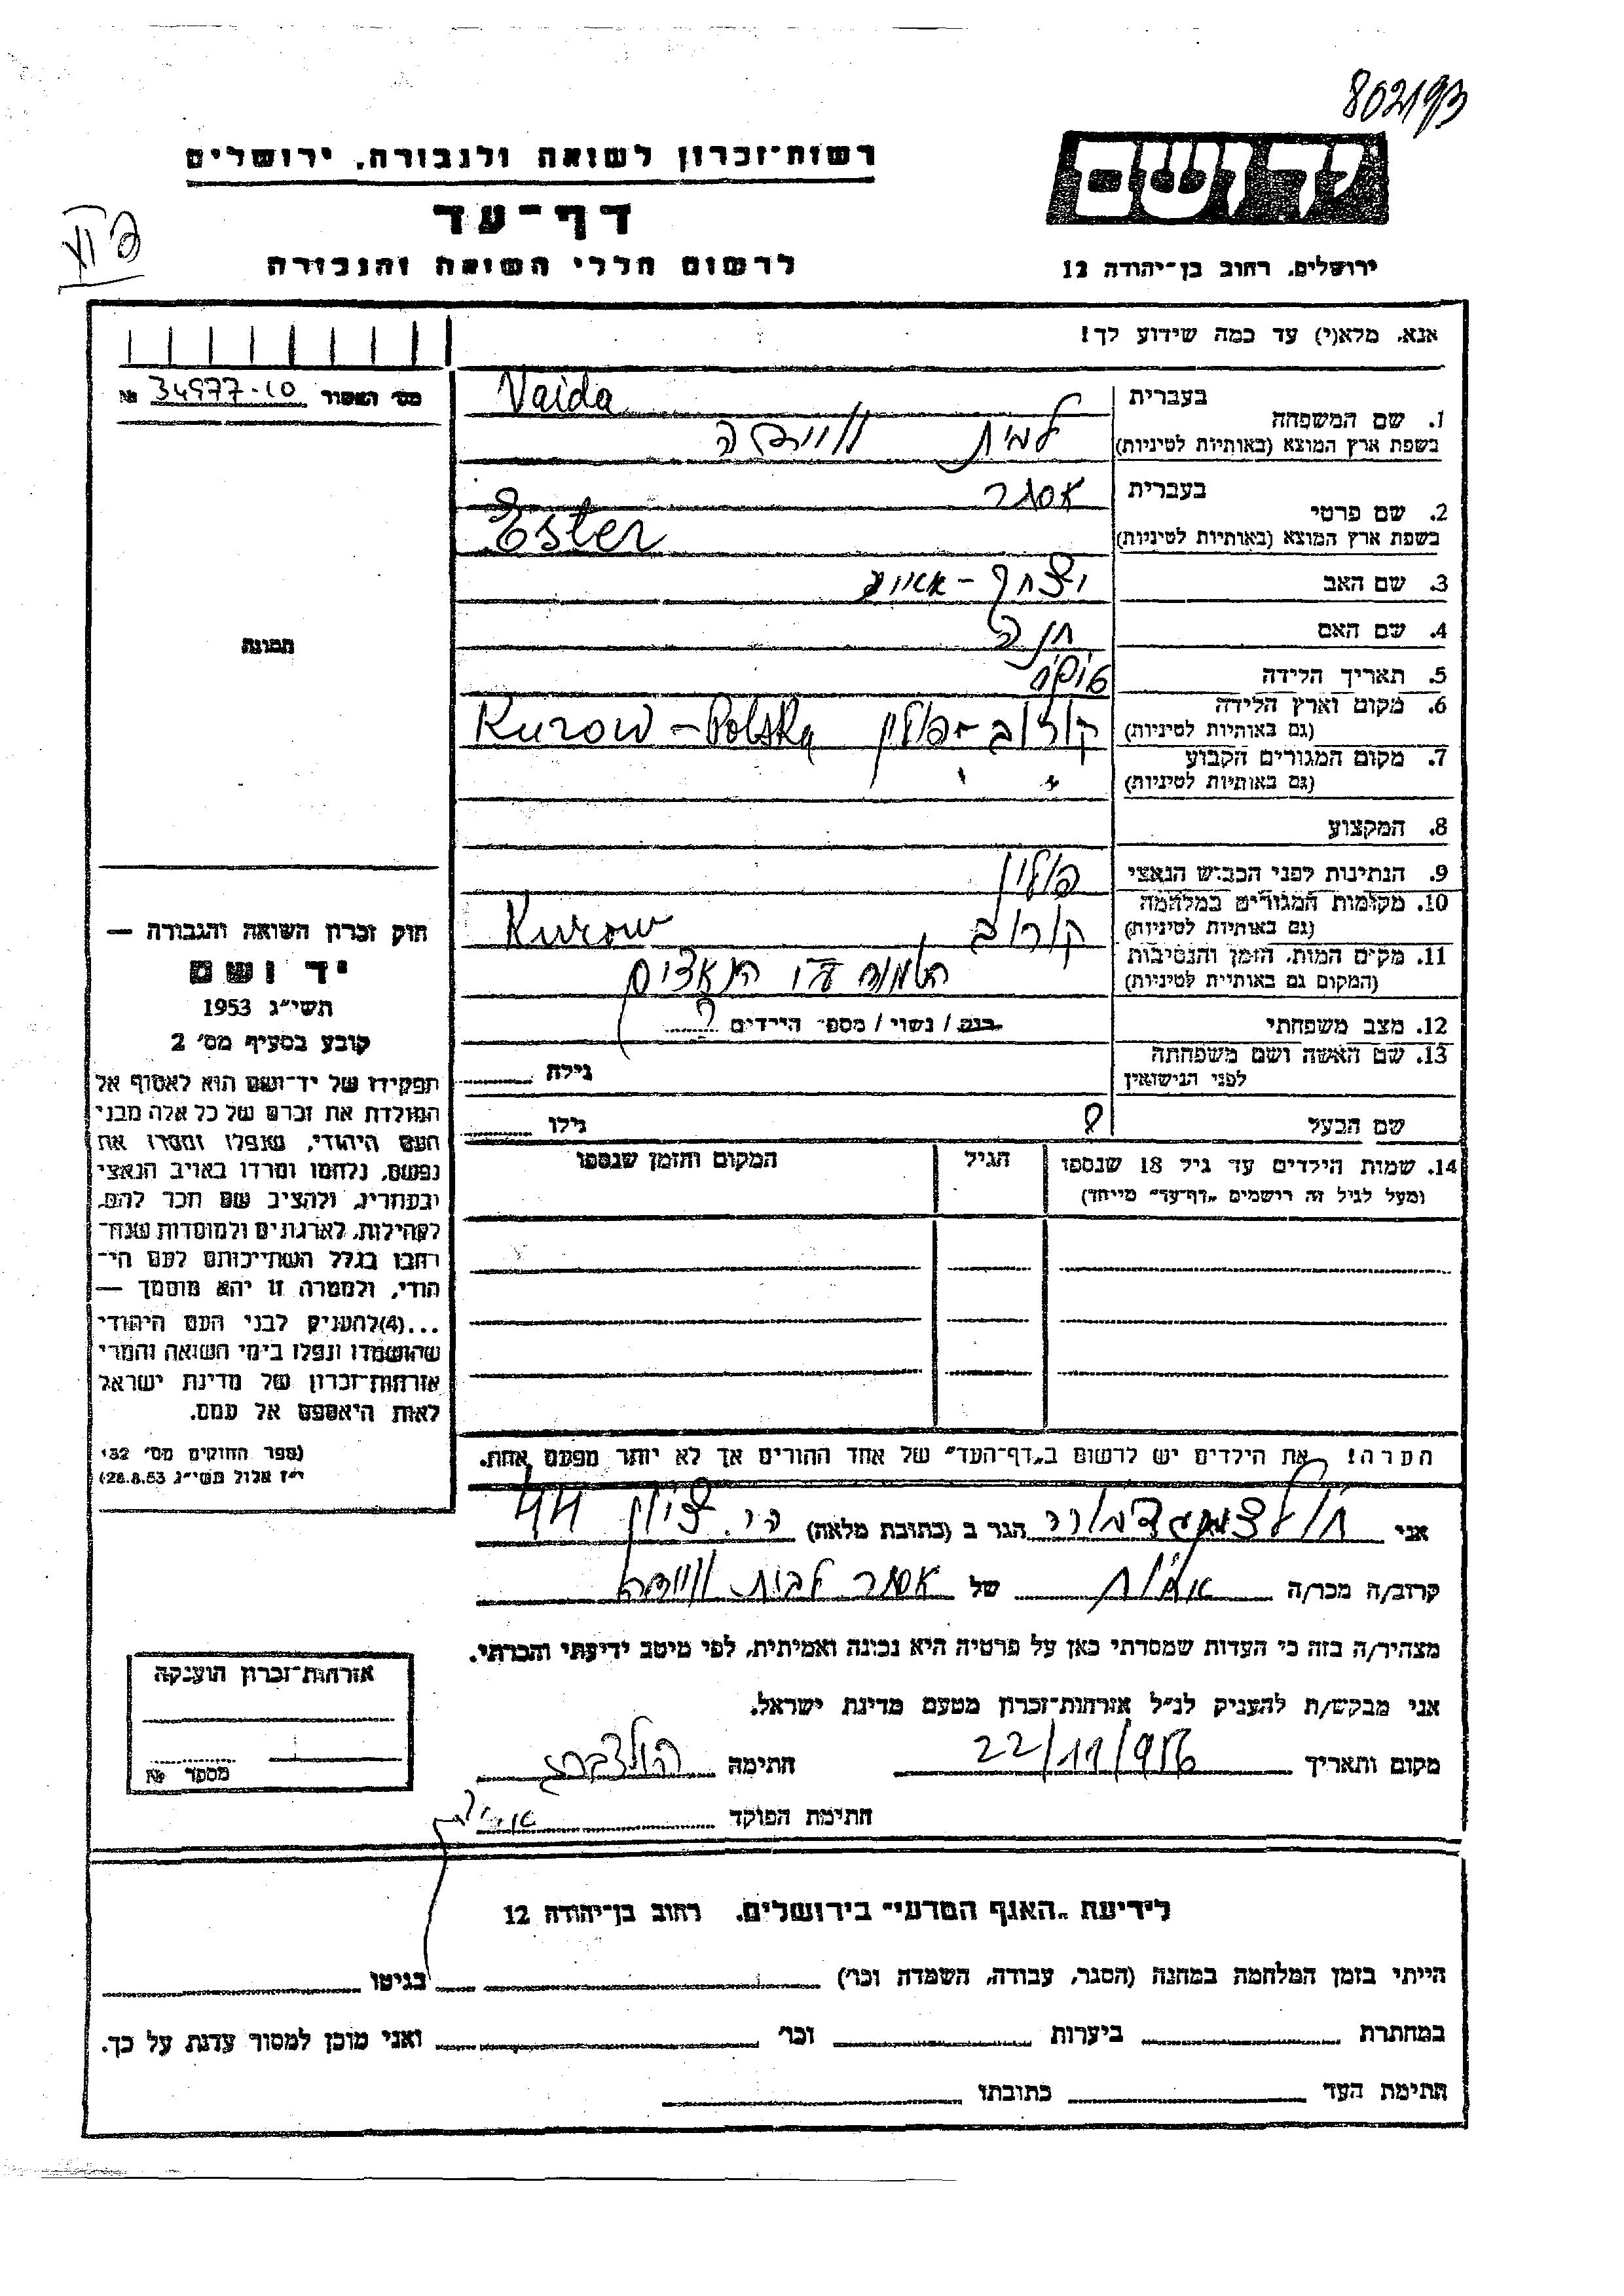 802193
רשות־זכרון לשואה ולגבורה, ירושלים
דף־עד
לרשום חללי השואה והגבורה
יד ושם
ירושלים, רחוב בן־יהודה 12
אנא, מלא(י) עד כמה שידוע לך!
מס׳ האסור 34977-10 №
תמונה
חוק זכרון השואה והגבורה —
יד ושם
תשי״ג 1953
קובע בסעיף מס׳ 2
תפקידו של יד־ושם הוא לאסוף אל
המולדת את זכרם של כל אלה מבני
העם היהודי, שנפלו ומסרו את
נפשם, נלחמו ומרדו באויב הנאצי
ובעוזריו, ולהציב שם וזכר להם,
לקהילות, לארגונים ולמוסדות שנח־
רבו בגלל השתייכותם לעם הי־
הודי, ולמטרה זו יהא מוסמך —
...(4) להעניק לבני העם היהודי
שהושמדו ונפלו בימי השואה והמרי
אזרחות־זכרון של מדינת ישראל
לאות היאספם אל עמם.
(ספר החוקים מס׳ 132
י״ז אלול תשי״ג 28.8.53)
1. שם המשפחה בעברית Vaida
בשפת ארץ המוצא (באותיות לטיניות) לבית ווידה
2. שם פרטי בעברית אסתר
בשפת ארץ המוצא (באותיות לטיניות) Ester
3. שם האב יצחק -
4. שם האם חנה
5. תאריך הלידה
6. מקום וארץ הלידה
(גם באותיות לטיניות) קורוב - פולין Kurow - Polska
7. מקום המגורים הקבוע
(גם באותיות לטיניות)
8. המקצוע
9. הנתינות לפני הכבוש הנאצי פולין
10. מקומות המגורים במלחמה
(גם באותיות לטיניות) קורוב, Kurow
11. מקום המות, הזמן והנסיבות
(המקום גם באותיות לטיניות) הושמדה ע״י הנאצים
12. מצב משפחתי רווק / נשוי / מספר הילדים ?
13. שם האשה ושם משפחתה
לפני הנישואין גילה
שם הבעל ? גילו
14. שמות הילדים עד גיל 18 שנספו הגיל המקום והזמן שנספו
(ומעל לגיל זה רישמים ״דף־עד״ מייחד)
הערה! את הילדים יש לרשום ב״דף־העד״ של אחד ההורים אך לא יותר מפעם אחת.
אני הגר ב (כתובת מלאה) הר ציון 44
קרוב/ה מכר/ה אחות של אסתר לבית ווידה
מצהיר/ה בזה כי העדות שמסרתי כאן על פרטיה היא נכונה ואמיתית, לפי מיטב ידיעתי והכרתי.
אני מבקש/ת להעניק לנ״ל אזרחות־זכרון מטעם מדינת ישראל.
מקום ותאריך 22/11/956 חתימה
חתימת הפוקד
אזרחות־זכרון הוענקה
מספר №
לידיעת ״האגף המדעי״ בירושלים, רחוב בן־יהודה 12
הייתי בזמן המלחמה במחנה (הסגר, עבודה, השמדה וכו׳) בגיטו
במחתרת ביערות וכו׳ ואני מוכן למסור עדות על כך.
חתימת העד כתובתו